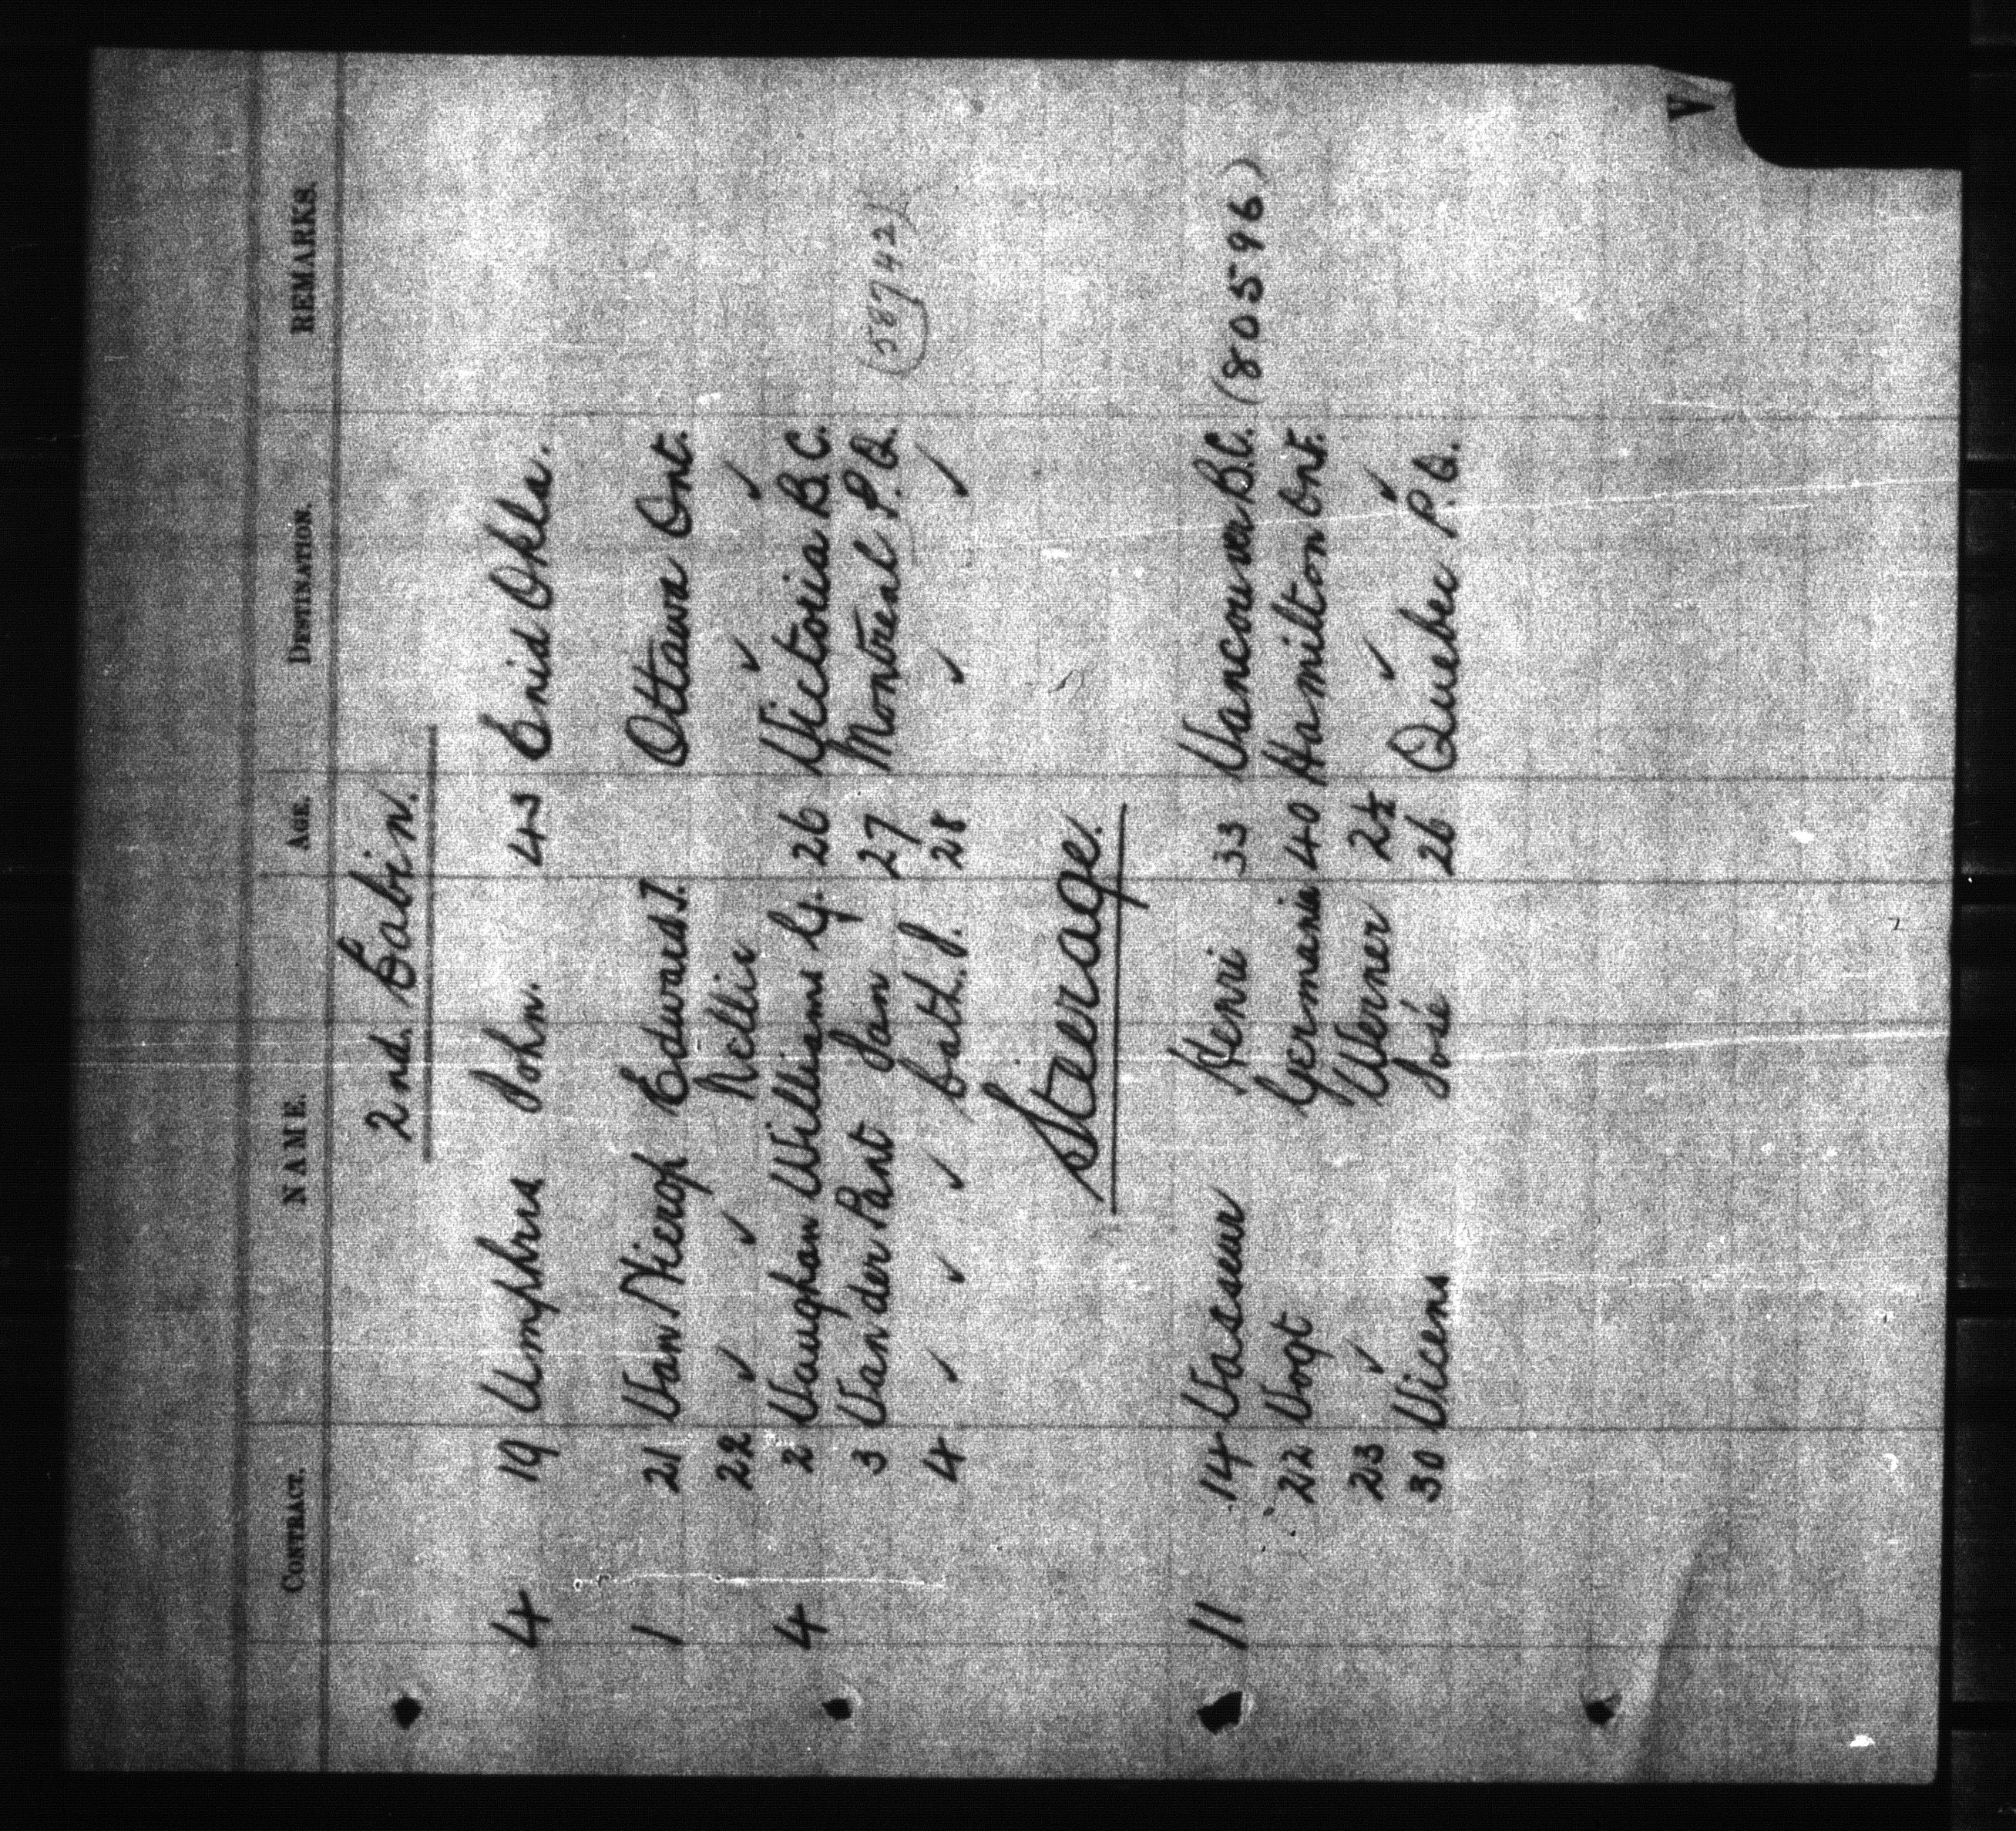 CONTRACT. NAME. AGE. DESTINATION. REMARKS.
2nd. Cabin.
4 19 Umphres John. 43 Enid Okla.
1 21 Van Nierop Edward J. Ottawa Ont.
22 ✓ ✓ Nellie ✓ ✓
4 2 Vaughan Williams G. 26 Victoria B.C.
3 Van der Pant Jan 27 Montreal P.Q. (58742)
4 ✓ ✓ ✓ Cath. J. 28 ✓ ✓
Steerage.
11 14 Vasseur Henri 33 Vancouver B.C. (80596)
22 Vogt Germanie 40 Hamilton Ont.
23 ✓ Werner 2½ ✓ ✓
30 Vicens José 26 Quebec P.Q.
V